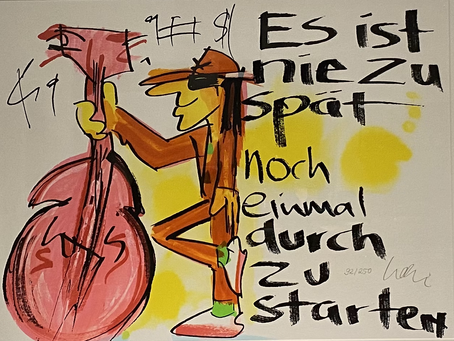 Es ist
nie zu
spät
noch
einmal
durch
zu
starten
32/250